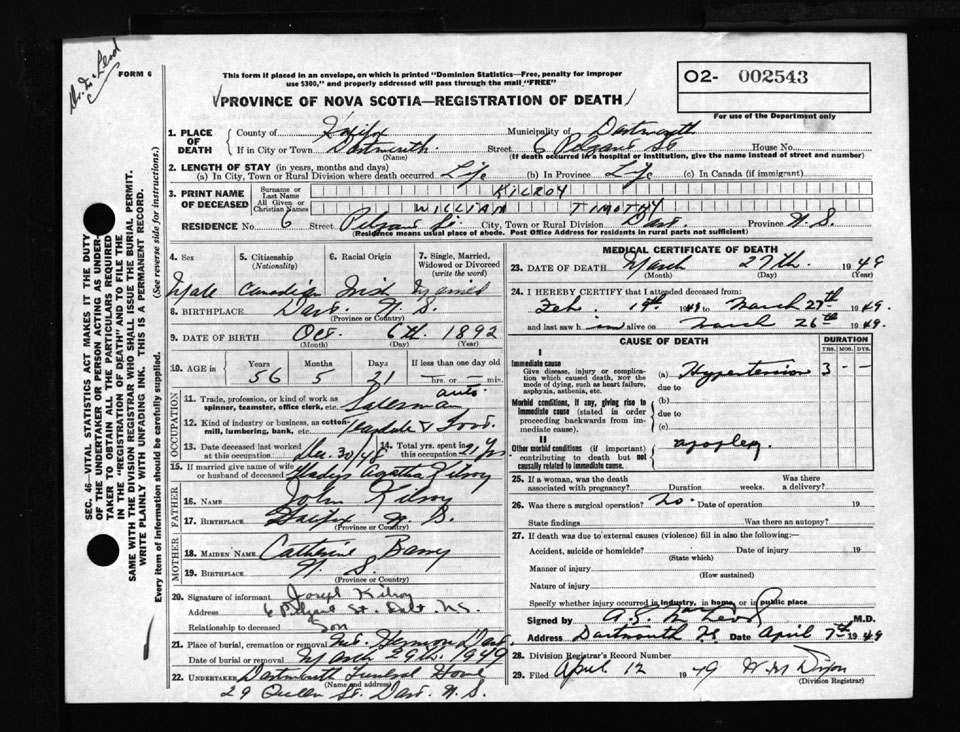 Dr. Mc Leod
FORM 6
This form if placed in an envelope, on which is printed "Dominion Statistics—Free, penalty for improper
use $300," and properly addressed will pass through the mail "FREE"
O2- 002543
For use of the Department only
PROVINCE OF NOVA SCOTIA—REGISTRATION OF DEATH
1. PLACE OF DEATH County of Halifax Municipality of Dartmouth
If in City or Town Dartmouth Street 6 St House No.
(Name) (If death occurred in a hospital or institution, give the name instead of street and number)
2. LENGTH OF STAY (in years, months and days)
(a) In City, Town or Rural Division where death occurred Life (b) In Province Life (c) In Canada (if immigrant)
3. PRINT NAME OF DECEASED Surname or Last Name KILROY
All Given or Christian Names WILLIAM TIMOTHY
RESIDENCE No. 6 Street St. City, Town or Rural Division Dart. Province N.S.
(Residence means usual place of abode. Post Office Address for residents in rural parts not sufficient)
4. Sex 5. Citizenship (Nationality) 6. Racial Origin 7. Single, Married, Widowed or Divorced (write the word)
Male Canadian Irish Married
8. BIRTHPLACE Dart. N.S.
(Province or Country)
9. DATE OF BIRTH Oct. 6th. 1892
(Month) (Day) (Year)
10. AGE in Years Months Days If less than one day old
56 5 21 hrs. or min.
11. Trade, profession or kind of work as spinner, teamster, office clerk, etc. auto Salesman
12. Kind of industry or business, as cotton-mill, lumbering, bank, etc. & Ford.
13. Date deceased last worked at this occupation Dec. 30/48 14. Total yrs. spent in this occupation 21 Yrs.
15. If married give name of wife or husband of deceased Gladys Agatha Kilroy
FATHER
16. NAME John Kilroy
17. BIRTHPLACE Halifax N.S.
(Province or Country)
MOTHER
18. MAIDEN NAME Catherine Barry
19. BIRTHPLACE N.S.
(Province or Country)
20. Signature of informant Joseph Kilroy
Address 6 St. Dart. N.S.
Relationship to deceased Son
21. Place of burial, cremation or removal Mt. Hermon Dart.
Date of burial or removal March 29th. 1949
22. UNDERTAKER Dartmouth Funeral Home
(Name and address)
29 Queen St. Dart. N.S.
OCCUPATION
MEDICAL CERTIFICATE OF DEATH
23. DATE OF DEATH March 27th. 1949
(Month) (Day) (Year)
24. I HEREBY CERTIFY that I attended deceased from:
Feb. 19th 1949 to March 27th 1949.
and last saw him alive on March 26th 1949.
CAUSE OF DEATH DURATION
YRS. MOS. DYS.
I
Immediate cause
Give disease, injury or complication which caused death, not the mode of dying, such as heart failure, asphyxia, asthenia, etc.
(a) Hypertension 3 - -
due to
Morbid conditions, if any, giving rise to immediate cause (stated in order proceeding backwards from immediate cause).
(b)
due to
(c)
II
Other morbid conditions (if important) contributing to death but not causally related to immediate cause.
apoplexy.
25. If a woman, was the death associated with pregnancy? Duration weeks. Was there a delivery?
26. Was there a surgical operation? No. Date of operation 19
State findings Was there an autopsy?
27. If death was due to external causes (violence) fill in also the following:—
Accident, suicide or homicide? Date of injury 19
(State which)
Manner of injury
(How sustained)
Nature of injury
Specify whether injury occurred in industry, in home, or in public place
Signed by A. G. MacLeod M.D.
Address Dartmouth N.S. Date April 7th 1949
28. Division Registrar's Record Number
29. Filed April 12 1949 W. M. Dixon
(Division Registrar)
SEC. 46—VITAL STATISTICS ACT MAKES IT THE DUTY
OF THE UNDERTAKER OR PERSON ACTING AS UNDERTAKER TO OBTAIN ALL THE PARTICULARS REQUIRED
IN THE "REGISTRATION OF DEATH" AND TO FILE THE
SAME WITH THE DIVISION REGISTRAR WHO SHALL ISSUE THE BURIAL PERMIT.
WRITE PLAINLY WITH UNFADING INK. THIS IS A PERMANENT RECORD.
Every item of information should be carefully supplied. (See reverse side for instructions.)